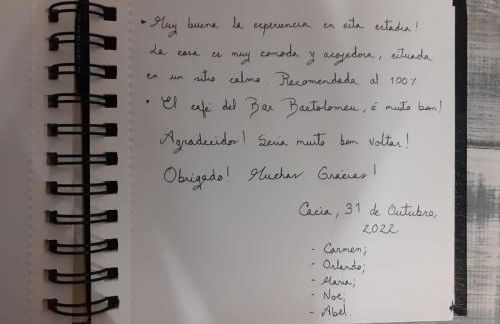 • Muy buena la experiencia en esta estadia!
La casa es muy comoda y acojedora, situada
en un sitio calmo. Recomendada al 100%
• El café del Bar Bartolomeu, é muito bom!
Agradecidos! Seria muito bom voltar!
Obrigado! Muchas Gracias!
Cacia, 31 de Outubro,
2022
- Carmen;
- Orlando;
- Maria;
- Noe;
- Abel.